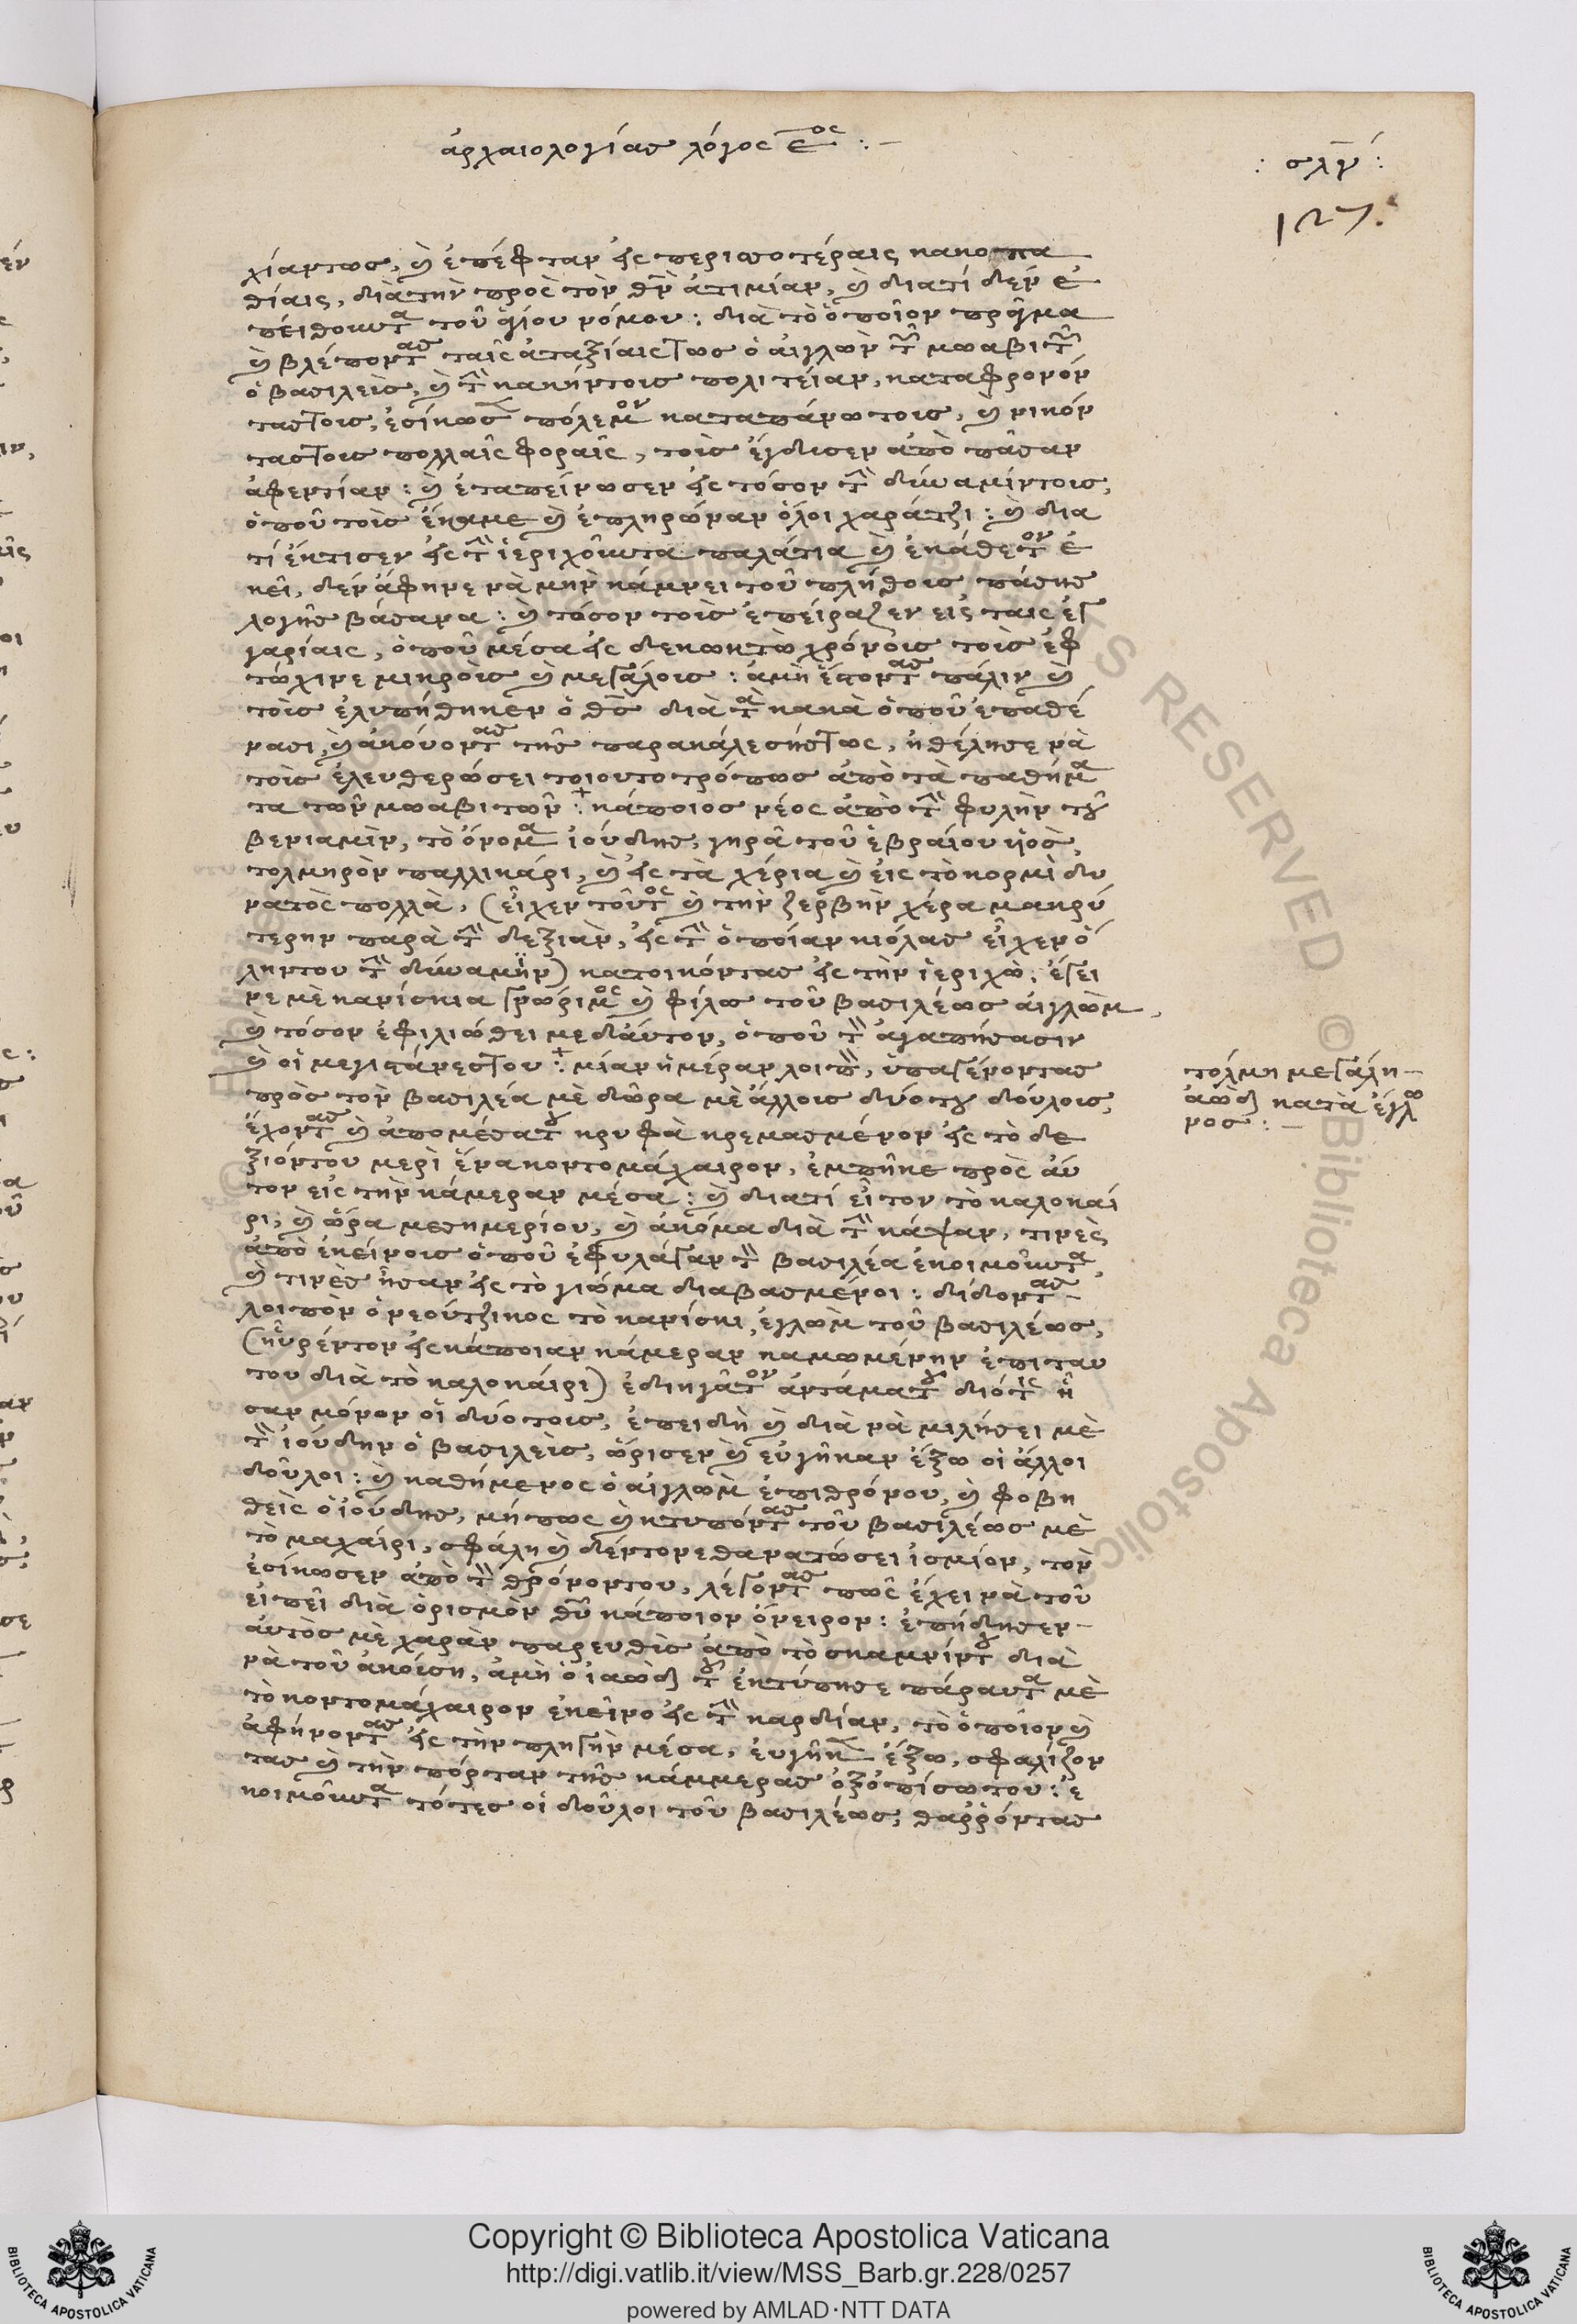 ἀρχαιολογίας λόγος ε̅ος : –
: σλγ :
127.
χίαντως, καὶ ἐπέφταν εἰς περισσοτέραις κακοπα
θίαις, διὰ τὴν πρὸς τὸν θν̅ ἀτιμίαν, καὶ διατί δεν ἐ
πείθουντα τοῦ ἁγίου νόμου : διὰ τὸ ὁποῖον πρᾶγμα
καὶ βλέποντας ταῖς ἀταξίαις τως ὁ αἰγλὼν τῶν μωαβιτῶν
ὁ βασιλεὺς, καὶ τὴν κακήντους πολιτείαν, καταφρονόν
τας τους, ἐσίκωσεν πόλεμον καταπάνω τους, καὶ νικόν
τας τους πολλαῖς φοραῖς, τοὺς ἔγδυσεν ἀπὸ πᾶσαν
ἀφεντίαν : καὶ ἐταπείνωσεν εἰς τόσον τὴν δύναμίντους,
ὁποῦ τοὺς ἔκαμε καὶ ἐπληρῶναν ὅλοι χαράτζι : καὶ δια
τί ἔκτισεν εἰς τὴν ἱεριχοῦντα παλάτια καὶ ἐκάθετον ἐ
κεῖ, δὲν ἄφηνε νὰ μὴν κάμνει τοῦ πλήθους πάσης
λογῆς βάσανα : καὶ τόσον τοὺς ἐπείραζεν εἰς ταις ἐγ
γαρίαις, ὁποῦ μέσα εἰς δεκωκτὼ χρόνους τοὺς ἐφ
τώχινε μικροὺς καὶ μεγάλους : ἀμὴ ἔστοντας πάλιν καὶ
τοὺς ἐλυπήθηκεν ὁ θς̅ διὰ τὰ κακὰ ὁποῦ ἐπαθέ
νασι, καὶ ἀκούοντας τῆς παρακάλεσήςτως, ἠθέλησε νὰ
τοὺς ἐλευθερώσει τοιουτοτρόπως ἀπὸ τὰ παθήμα
τα τῶν μωαβιτῶν :+ κάποιος νέος ἀπὸ τὴν φυλὴν τοῦ
βενιαμὶν, τὸ ὄνομα ἰούδης, γηρᾶ τοῦ ἑβραίου ὑιὸς,
τολμηρὸν παλλικάρι, καὶ εἰς τὰ χέρια καὶ εἰς τὸ κορμὶ δυ
νατὸς πολλὰ, (εἶχεν τοῦτος καὶ τὴν ζερβὴν χέρα μακρύ
τερην παρὰ τὴν δεξιὰν, εἰς τὴν ὁποίαν κιόλας εἶχεν ὅ
ληντου τὴν δύναμην) κατοικόντας εἰς τὴν ἱεριχὼ, ἔγει
νε μὲ κανίσκια γνώριμος καὶ φίλος τοῦ βασιλέως αἰγλὼμ,
καὶ τόσον ἐφιλιώθει μεδαύτον, ὁποῦ τὸν ἀγαπήσασιν
καὶ οἱ μεγιστάνες του :+ μίαν ἡμέραν λοιπὸν, ὑπαγένοντας
πρὸς τὸν βασιλέα μὲ δῶρα μὲ ἄλλους δύο του δούλους,
ἔχοντας καὶ ἀπομέσατου κρυφὰ κρεμασμένον εἰς τὸ δε
ξιόντου μερὶ ἕνα κοντομάχαιρον, ἐμπῆκε πρὸς αὐ
τον εἰς τὴν κάμεραν μέσα : καὶ διατί εἶτον τὸ καλοκαί
ρι, καὶ ὥρα μεσημερίου, καὶ ἀκόμα διὰ τὴν κάψαν, τινὲς
ἀπὸ ἐκείνους ὁποῦ ἐφυλάγαν τὸν βασιλέα ἐκοιμοῦντα,
καὶ τινὲς ἦσαν εἰς τὸ γιῶμα διαβασμένοι : δίδοντας
λοιπὸν ὁ νεούτζικος τὸ κανίσκι, ἐγλὼμ τοῦ βασιλέως,
(ηὑρέντον εἰς κάποιαν κάμεραν καμωμένην ἐπὶ ταυ
του διὰ τὸ καλοκάιρι) ἐδιηγᾶτον ἀντάματου διότις ἦ
σαν μόνον οἱ δύο τους, ἐπειδὴ καὶ διὰ νὰ μιλήσει μὲ
τὸν ἰούδην ὁ βασιλεὺς, ὥρισεν καὶ εὐγῆκαν ἔξω οἱ ἄλλοι
δοῦλοι : καὶ καθήμενος ὁ αἰγλὼμ ἐπιθρόνου, καὶ φοβη
θεὶς ὁ ἰούδης, μήπως καὶ κτυπόντας τοῦ βασιλέως μὲ
τὸ μαχαίρι, σφάλη καὶ δέντονε θανατώσει ἰσμίον, τον
ἐσίκωσεν ἀπὸ τὸν θρόνοντου, λέγοντας πῶς ἔχει νὰ τοῦ
εἰπεῖ διὰ ὁρισμὸν θῦ κάποιον ὄνειρον : ἐπήδησεν –
αὐτὸς μὲ χαρὰν παρευθὺς ἀπὸ τὸ σκαμνίντου διὰ
νὰ τοῦ ἀκούση, ἀμὴ ὁ ἰαὼδ τοῦ ἐκτύπησε πάραυτα μὲ
τὸ κοντομάχαιρον ἐκεῖνο εἰς τὴν καρδίαν, τὸ ὁποίον καὶ
ἀφήνοντας εἰς τὴν πληγὴν μέσα, ἐυγῆκεν ἔξω, σφαλίζον
τας καὶ τὴν πόρταν τῆς κάμμερας ὀξοπίσωτου : ἐ
κοιμοῦντα τότες οἱ δοῦλοι τοῦ βασιλέως, θαῤῥόντας
τόλμη μεγάλη –
ἀὼδ κατὰ ἐγλω
νος : –
Copyright © Biblioteca Apostolica Vaticana
http://digi.vatlib.it/view/MSS_Barb.gr.228/0257
powered by AMLAD·NTT DATA